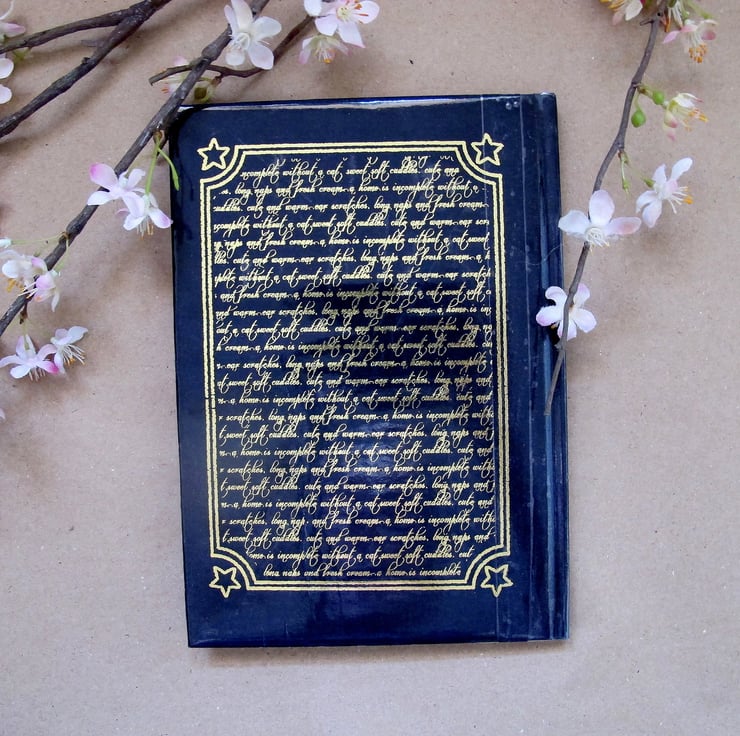 incomplete without a cat sweet soft cuddles. cute and
s. long naps and fresh cream~a home is incomplete without a
cuddles. cute and warm~ear scratches. long naps and fresh cream~
complete without a cat sweet soft cuddles. cute and warm~ear scr
g naps and fresh cream~a home is incomplete without a cat sweet
les. cute and warm~ear scratches. long naps and fresh cream~a h
plete without a cat sweet soft cuddles. cute and warm~ear scratch
and fresh cream~a home is incomplete without a cat sweet soft c
and warm~ear scratches. long naps and fresh cream~a home is in
out a cat sweet soft cuddles. cute and warm~ear scratches. long n
h cream~a home is incomplete without a cat sweet soft cuddles. cu
~ear scratches. long naps and fresh cream~a home is incomplete
at sweet soft cuddles. cute and warm~ear scratches. long naps and
m~a home is incomplete without a cat sweet soft cuddles. cute and
r scratches. long naps and fresh cream~a home is incomplete with
t sweet soft cuddles. cute and warm~ear scratches. long naps and
m~a home is incomplete without a cat sweet soft cuddles. cute and
r scratches. long naps and fresh cream~a home is incomplete with
t sweet soft cuddles. cute and warm~ear scratches. long naps and
m~a home is incomplete without a cat sweet soft cuddles. cute and
r scratches. long naps and fresh cream~a home is incomplete with
t sweet soft cuddles. cute and warm~ear scratches. long naps and
home is incomplete without a cat sweet soft cuddles. cut
long naps and fresh cream~a home is incomplete